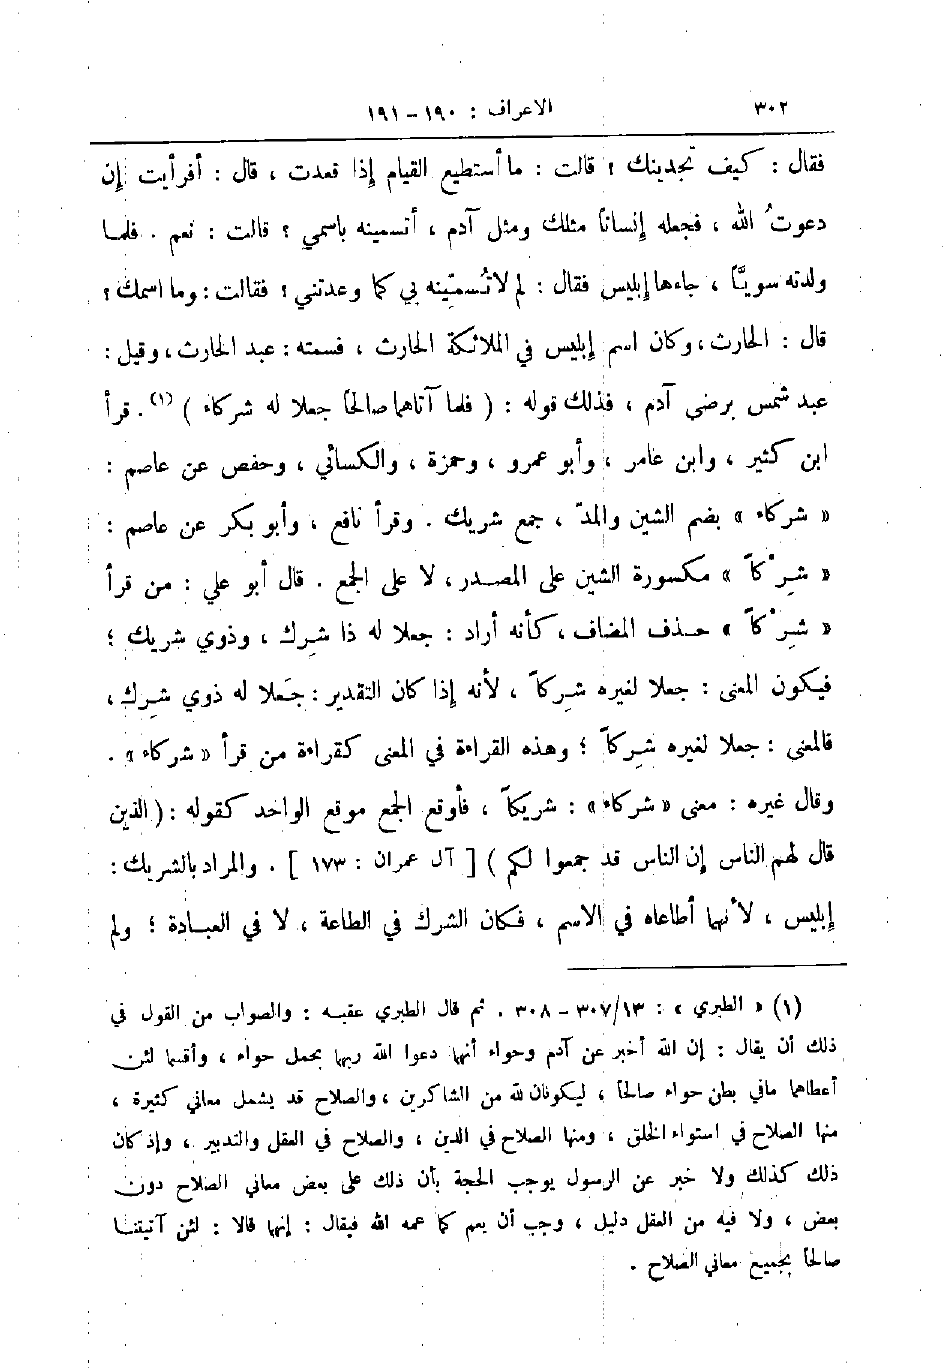 ٣٠٢ الاعراف : ١٩٠ – ١٩١
فقال : كيف تجدينك ؟ قالت : ما أستطيع القيام إذا قعدت ، قال : أفرأيت إن
دعوتُ الله ، فجعله إنساناً مثلك ومثل آدم ، أتسمينه باسمي ؟ قالت : نعم . فلما
ولدته سويّاً ، جاءها إبليس فقال : لم لا تُسمّينه بي كما وعدتني ؟ فقالت : وما اسمك ؟
قال : الحارث ، وكان اسم إبليس في الملائكة الحارث ، فسمته : عبد الحارث ، وقيل :
عبد شمس برضى آدم ، فذلك قوله : ( فلما آتاهما صالحاً جعلا له شركاء ) (١) . قرأ
ابن كثير ، وابن عامر ، وأبو عمرو ، وحمزة ، والكسائي ، وحفص عن عاصم :
« شركاء » بضم الشين والمدّ ، جمع شريك . وقرأ نافع ، وأبو بكر عن عاصم :
« شِرْكاً » مكسورة الشين على المصدر ، لا على الجمع . قال أبو علي : من قرأ
« شِرْكاً » حذف المضاف ، كأنه أراد : جعلا له ذا شِرك ، وذوي شريك ؛
فيكون المعنى : جعلا لغيره شِركاً ، لأنه إذا كان التقدير : جَعلا له ذوي شِرك ،
فالمعنى : جعلا لغيره شِركاً ؛ وهذه القراءة في المعنى كقراءة من قرأ « شركاء » .
وقال غيره : معنى « شركاء » : شريكاً ، فأوقع الجمع موقع الواحد كقوله : ( الذين
قال لهم الناس إن الناس قد جمعوا لكم ) [ آل عمران : ١٧٣ ] . والمراد بالشريك :
إبليس ، لأنهما أطاعاه في الاسم ، فكان الشرك في الطاعة ، لا في العبادة ؛ ولم
(١) « الطبري » : ٣٠٧/١٣ – ٣٠٨ . ثم قال الطبري عقبه : والصواب من القول في
ذلك أن يقال : إن الله أخبر عن آدم وحواء أنهما دعوا الله ربهما بحمل حواء ، وأقسما لئن
أعطاهما مافي بطن حواء صالحاً ، ليكونان لله من الشاكرين ، والصلاح قد يشمل معاني كثيرة ،
منها الصلاح في استواء الخلق ، ومنها الصلاح في الدين ، والصلاح في العقل والتدبير ، وإذ كان
ذلك كذلك ولا خبر عن الرسول يوجب الحجة بأن ذلك على بعض معاني الصلاح دون
بعض ، ولا فيه من العقل دليل ، وجب أن يعم كما عمه الله فيقال : إنهما قالا : لئن آتيتنا
صالحاً بجميع معاني الصلاح .